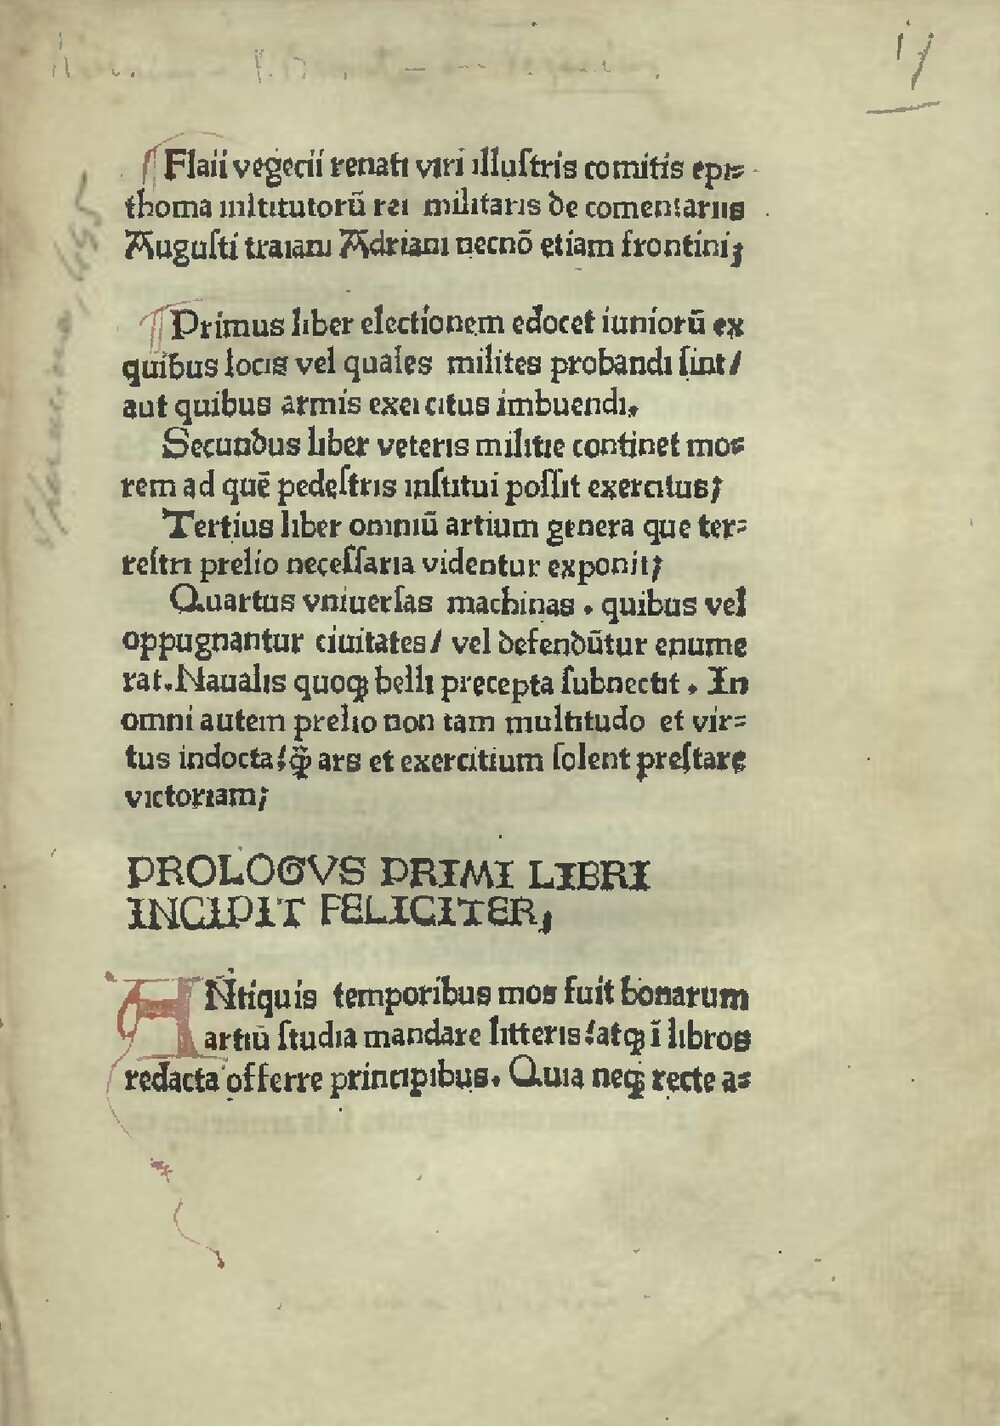 ¶ Flaii vegecii renati viri illuſtris comitis epi⸗
thoma inſtitutorū rei militaris de comentariis
Auguſti traiani Adriani necnō etiam frontini;
¶ Primus liber electionem edocet iuniorū ex
quibus locis vel quales milites probandi ſint/
aut quibus armis exercitus imbuendi.
Secundus liber veteris militie continet mo⸗
rem ad quē pedeſtris inſtitui poſſit exercitus;
Tertius liber omniū artium genera que ter⸗
reſtri prelio neceſſaria videntur exponit;
Quartus vniuerſas machinas . quibus vel
oppugnantur ciuitates/ vel defendūtur enume
rat. Naualis quoqꝫ belli precepta ſubnectit . In
omni autem prelio non tam multitudo et vir⸗
tus indocta! q̄ꝫ ars et exercitium ſolent preſtare
victoriam;
PROLOGVS PRIMI LIBRI
INCIPIT FELICITER;
ANtiquis temporibus mos fuit bonarum
artiū ſtudia mandare litteris! atqꝫ ī libros
redacta offerre principibus. Quia neqꝫ recte a⸗